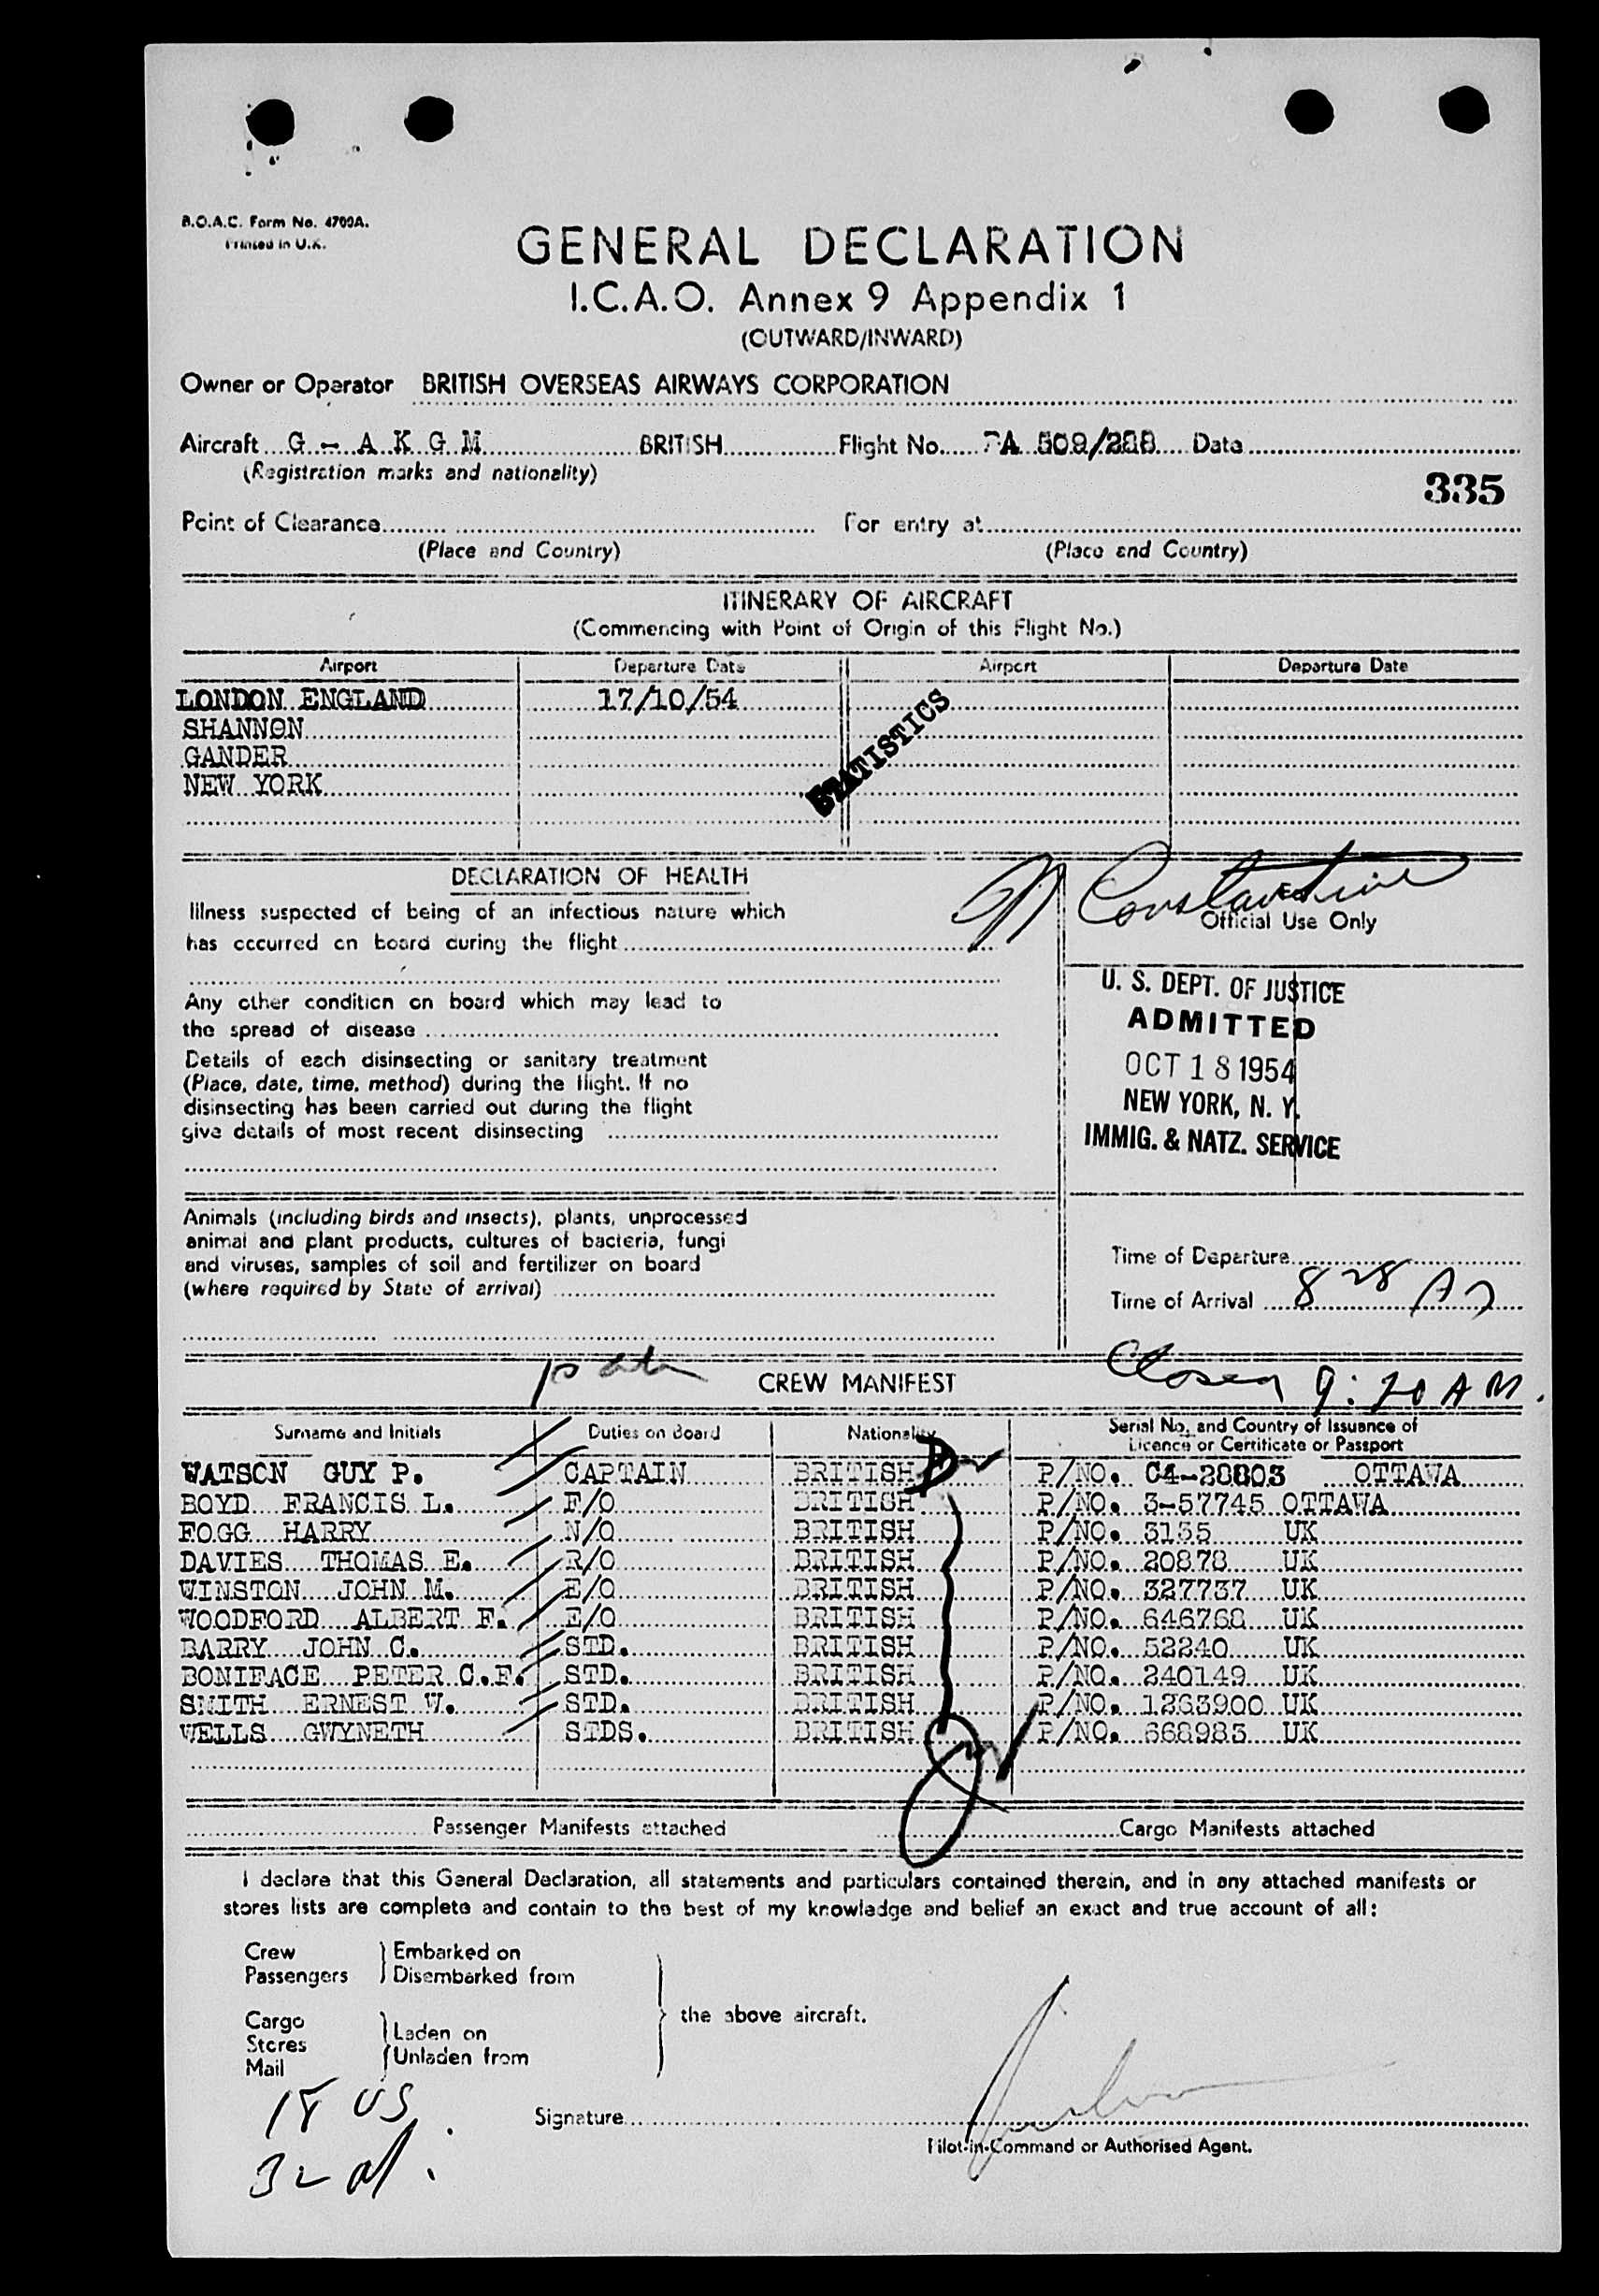 B.O.A.C. Form No. 4700A.
Printed in U.K.
GENERAL DECLARATION
I.C.A.O. Annex 9 Appendix 1
(OUTWARD/INWARD)
Owner or Operator BRITISH OVERSEAS AIRWAYS CORPORATION
Aircraft G - A K G M BRITISH Flight No. BA 509/288 Date
(Registration marks and nationality)
335
Point of Clearance For entry at
(Place and Country) (Place and Country)
ITINERARY OF AIRCRAFT
(Commencing with Point of Origin of this Flight No.)
Airport Departure Date Airport Departure Date
LONDON ENGLAND 17/10/54
SHANNON
GANDER
NEW YORK
STATISTICS
DECLARATION OF HEALTH
Constantine
Illness suspected of being of an infectious nature which
has occurred on board during the flight
Official Use Only
Any other condition on board which may lead to
the spread of disease
Details of each disinsecting or sanitary treatment
(Place, date, time, method) during the flight. If no
disinsecting has been carried out during the flight
give details of most recent disinsecting
U. S. DEPT. OF JUSTICE
ADMITTED
OCT 18 1954
NEW YORK, N. Y.
IMMIG. & NATZ. SERVICE
Animals (including birds and insects), plants, unprocessed
animal and plant products, cultures of bacteria, fungi
and viruses, samples of soil and fertilizer on board
(where required by State of arrival)
Time of Departure
Time of Arrival 8 28 A
Closed 9:20 AM.
CREW MANIFEST
Surname and Initials Duties on Board Nationality Serial No. and Country of Issuance of
Licence or Certificate or Passport
WATSON GUY P. CAPTAIN BRITISH P/NO. C4-28803 OTTAWA
BOYD FRANCIS L. F/O BRITISH P/NO. 3-57745 OTTAWA
FOGG HARRY N/O BRITISH P/NO. 3155 UK
DAVIES THOMAS E. R/O BRITISH P/NO. 20878 UK
WINSTON JOHN M. E/O BRITISH P/NO. 327737 UK
WOODFORD ALBERT F. E/O BRITISH P/NO. 646768 UK
BARRY JOHN C. STD. BRITISH P/NO. 52240 UK
BONIFACE PETER C.F. STD. BRITISH P/NO. 240149 UK
SMITH ERNEST W. STD. BRITISH P/NO. 1263900 UK
WELLS GWYNETH STDS. BRITISH P/NO. 668983 UK
Passenger Manifests attached Cargo Manifests attached
I declare that this General Declaration, all statements and particulars contained therein, and in any attached manifests or
stores lists are complete and contain to the best of my knowledge and belief an exact and true account of all:
Crew Embarked on
Passengers Disembarked from
the above aircraft.
Cargo
Stores Laden on
Mail Unladen from
18 US
32 al.
Signature
Pilot-in-Command or Authorised Agent.